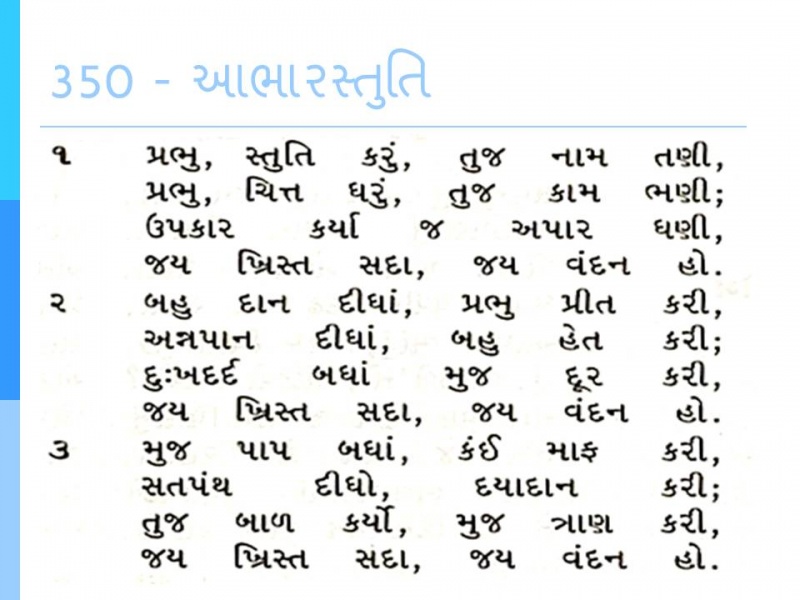 350 - આભારસ્તુતિ
૧ પ્રભુ, સ્તુતિ કરું, તુજ નામ તણી,
પ્રભુ, ચિત્ત ધરું, તુજ કામ ભણી;
ઉપકાર કર્યા જ અપાર ઘણી,
જય ખ્રિસ્ત સદા, જય વંદન હો.
૨ બહુ દાન દીધાં, પ્રભુ પ્રીત કરી,
અન્નપાન દીધાં, બહુ હેત કરી;
દુઃખદર્દ બધાં મુજ દૂર કરી,
જય ખ્રિસ્ત સદા, જય વંદન હો.
૩ મુજ પાપ બધાં, કંઈ માફ કરી,
સતપંથ દીધો, દયાદાન કરી;
તુજ બાળ કર્યો, મુજ ત્રાણ કરી,
જય ખ્રિસ્ત સદા, જય વંદન હો.